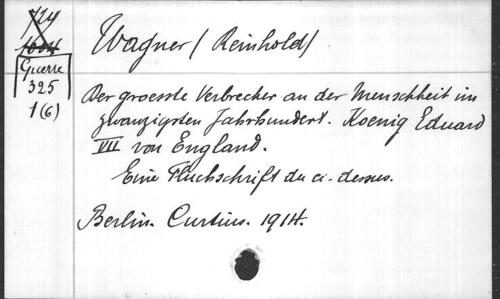 724
1004
Guerre
325
1(6)
Wagner (Reinhold)
Der groesste Verbrecher an der Menschheit im
zwanzigsten Jahrhundert. Koenig Eduard
VII von England.
Eine Fluchschrift du ci-dessus.
Berlin. Curtius. 1914.